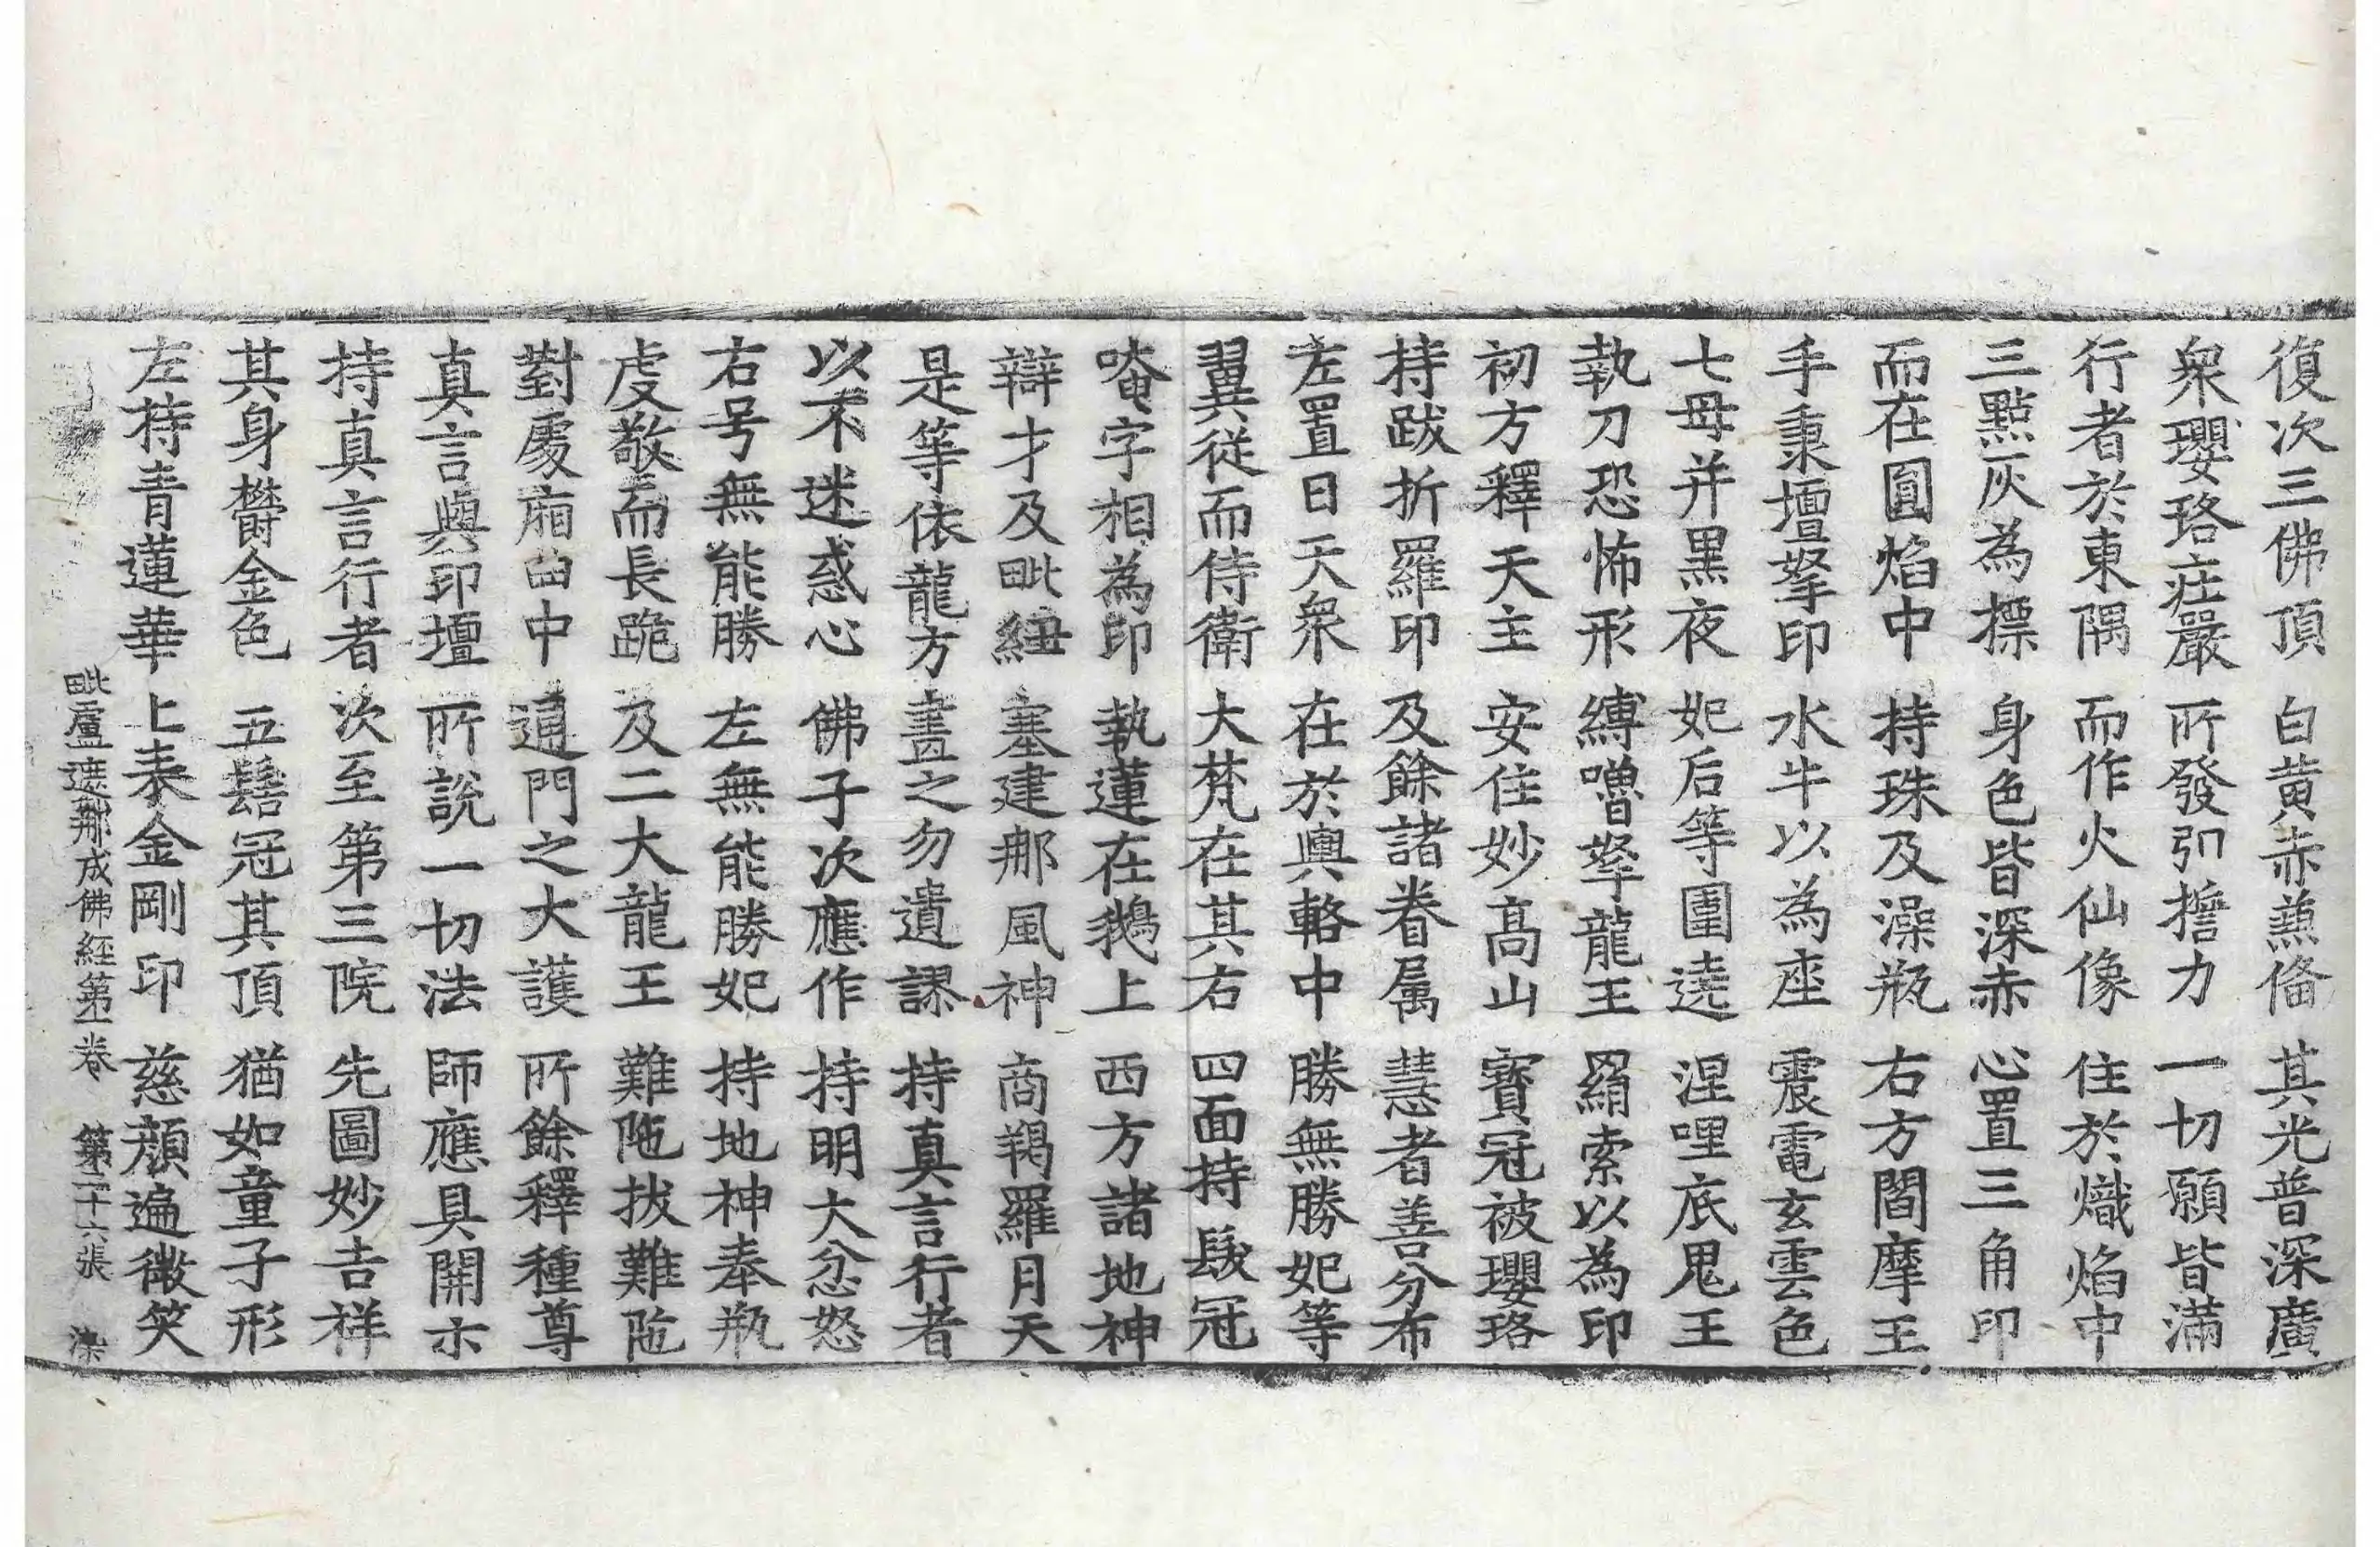 復次三佛頂 白黃赤兼俻 其光普深廣
衆瓔珞莊嚴 所發弘擔力 一切願皆滿
行者於東隅 而作火仙像 住於熾焰中
三點灰為摽 身色皆深赤 心置三角印
而在圓焰中 持珠及澡瓶 右方閻摩王
手秉壇拏印 水牛以為座 震電玄雲色
七母并黑夜 妃后等圍遶 涅哩底鬼王
執刀恐怖形 縛嚕拏龍王 羂索以為印
初方釋天主 安住妙高山 寶冠被瓔珞
持跋折羅印 及餘諸眷属 慧者善分布
左置日天衆 在於輿輅中 勝無勝妃等
翼從而侍衛 大梵在其右 四面持髮冠
唵字相為印 執蓮在鵝上 西方諸地神
辯才及毗紐 塞建那風神 商羯羅月天
是等依龍方 畫之勿遺謬 持真言行者
以不迷惑心 佛子次應作 持明大忿怒
右号無能勝 左無能勝妃 持地神奉瓶
虔敬而長跪 及二大龍王 難陁拔難陁
對處廂曲中 通門之大護 所餘釋種尊
真言與印壇 所說一切法 師應具開示
持真言行者 次至第三院 先圖妙吉祥
其身欝金色 五髻冠其頂 猶如童子形
左持青蓮華 上表金剛印 慈顔遍微笑
毗盧遮那成佛經第一卷 第二十六張 染